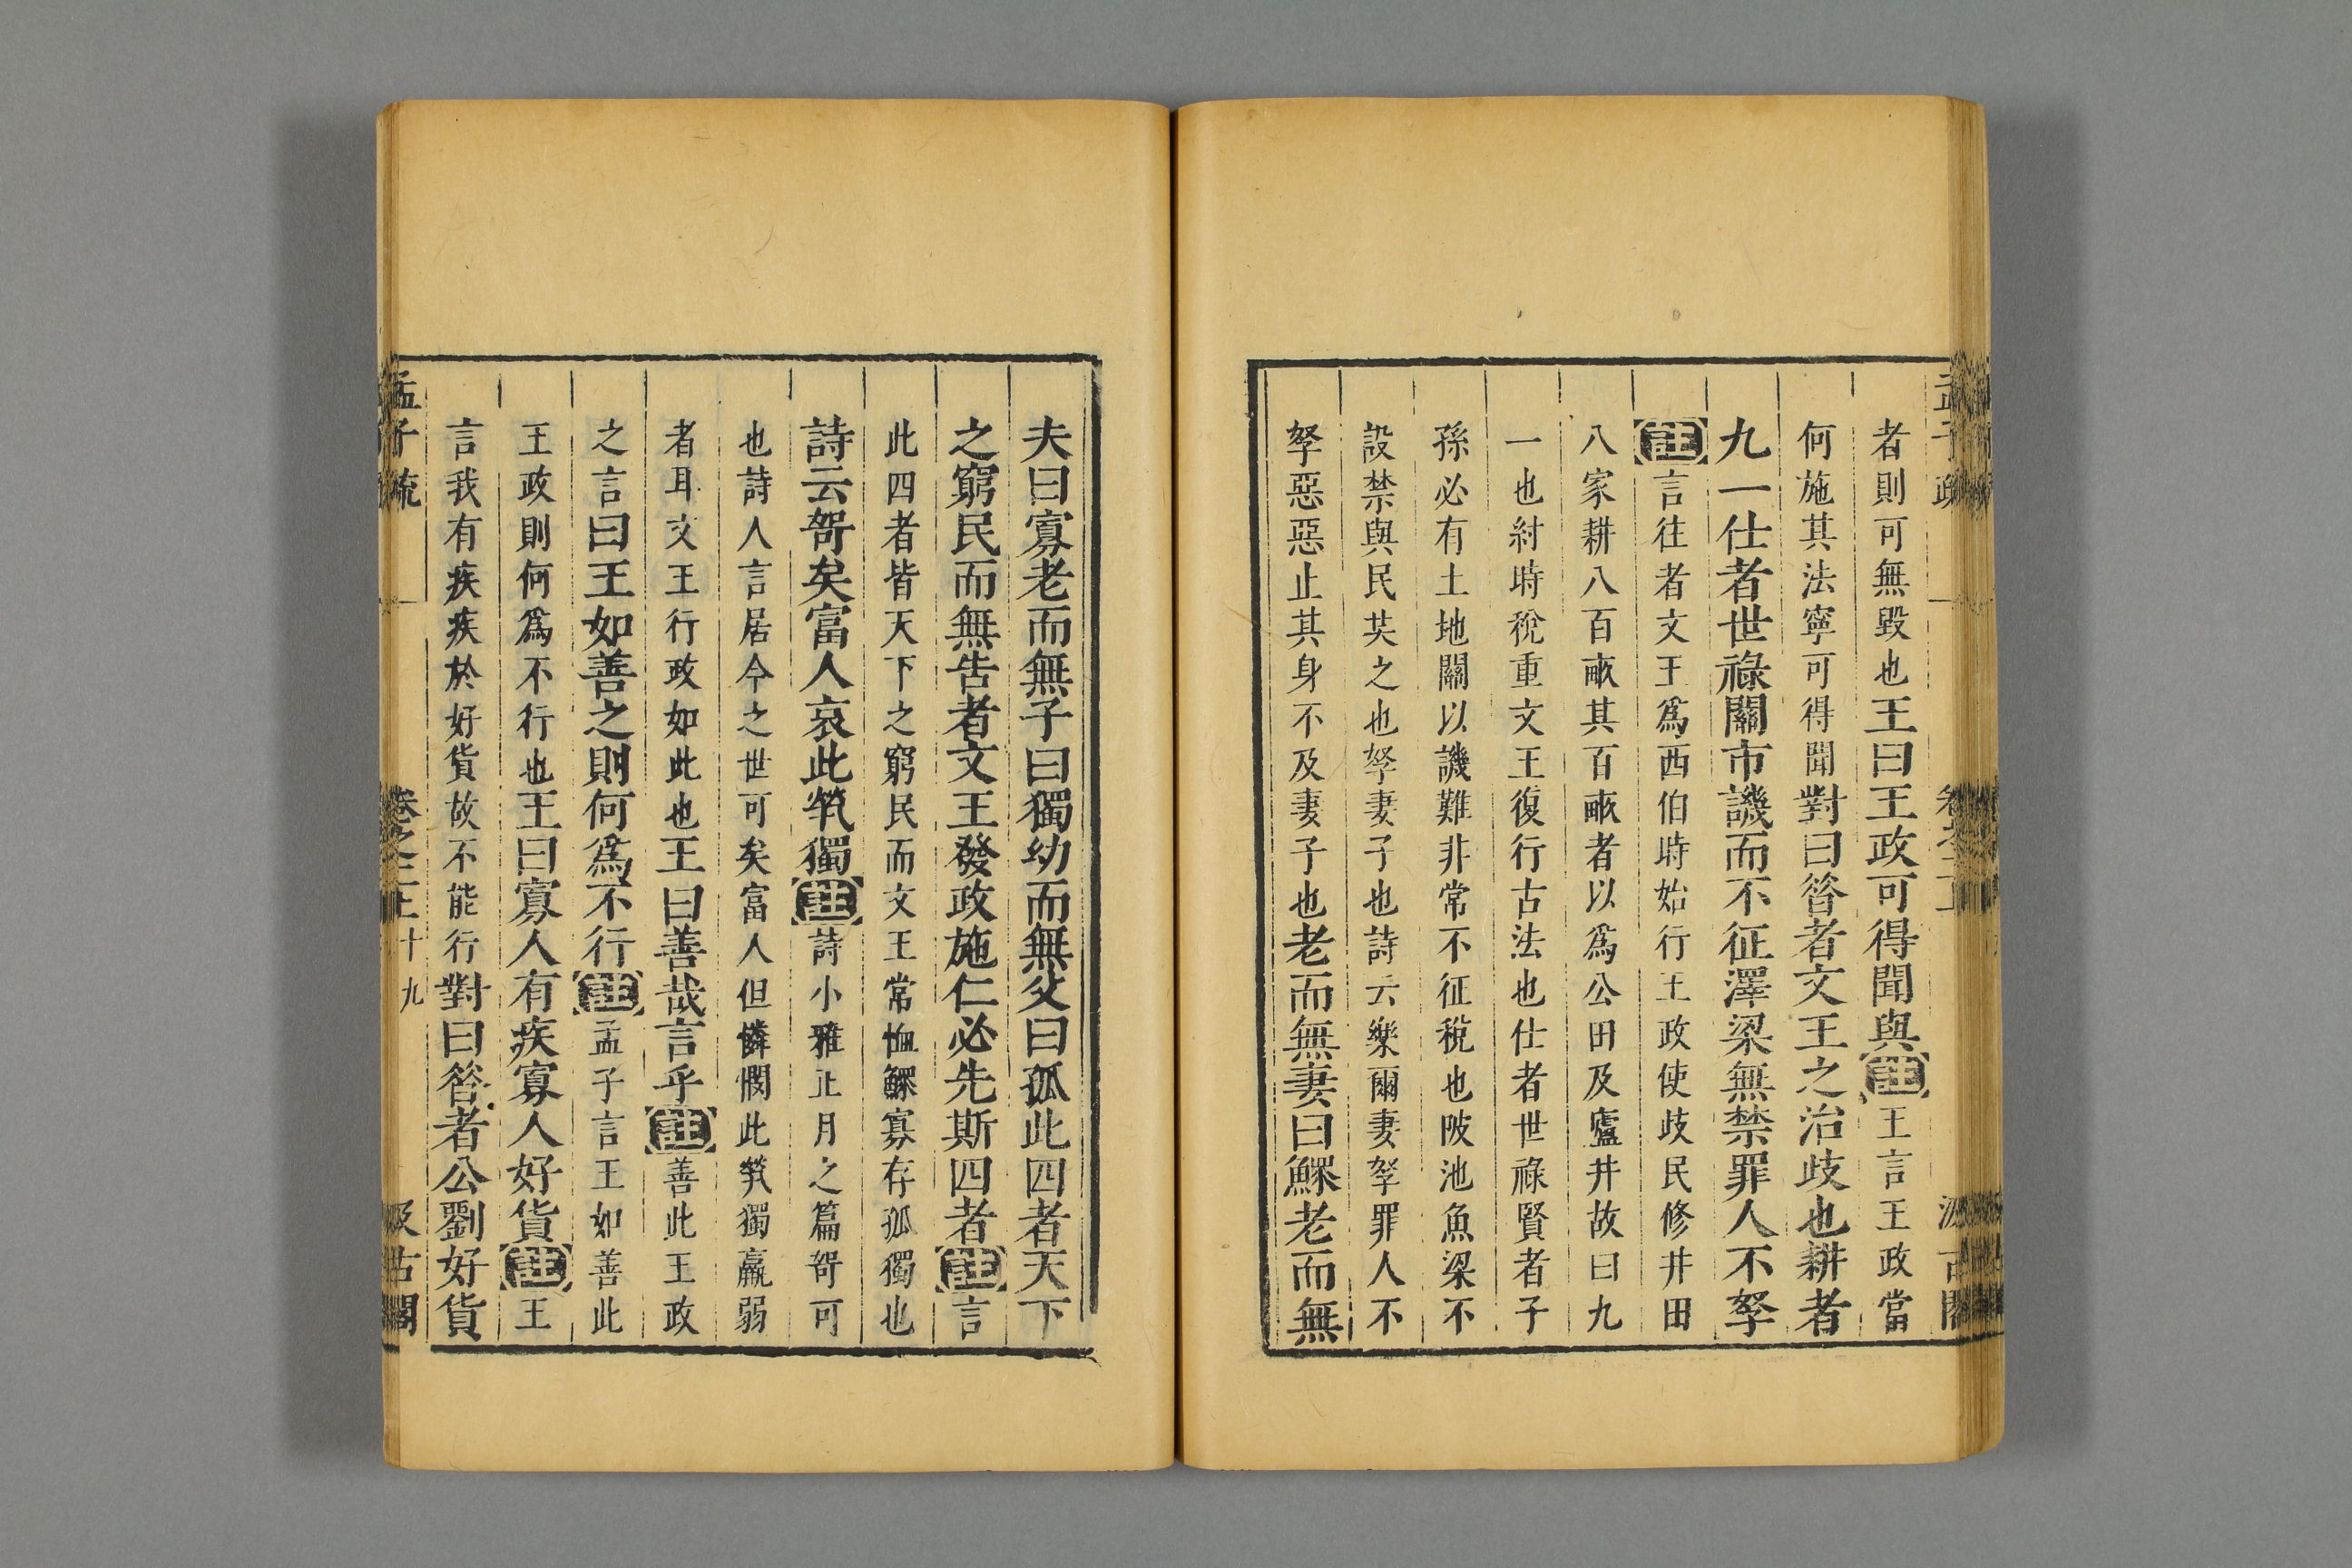 者則可無毀也王曰王政可得聞與註王言王政當
何施其法寧可得聞對曰答者文王之治歧也耕者
九一仕者世祿關市譏而不征澤梁無禁罪人不孥
註言往者文王爲西伯時始行王政使歧民修井田
八家耕八百畝其百畝者以爲公田及廬井故曰九
一也紂時稅重文王復行古法也仕者世祿賢者子
孫必有土地關以譏難非常不征稅也陂池魚梁不
設禁與民共之也孥妻子也詩云樂爾妻孥罪人不
孥惡惡止其身不及妻子也老而無妻曰鰥老而無
夫曰寡老而無子曰獨幼而無父曰孤此四者天下
之窮民而無告者文王發政施仁必先斯四者註言
此四者皆天下之窮民而文王常恤鰥寡存孤獨也
詩云哿矣富人哀此煢獨註詩小雅正月之篇哿可
也詩人言居今之世可矣富人但憐憫此煢獨羸弱
者耳文王行政如此也王曰善哉言乎註善此王政
之言曰王如善之則何爲不行註孟子言王如善此
王政則何爲不行也王曰寡人有疾寡人好貨註王
言我有疾疾於好貨故不能行對曰答者公劉好貨
孟子疏 卷之二上 十九 汲古閣